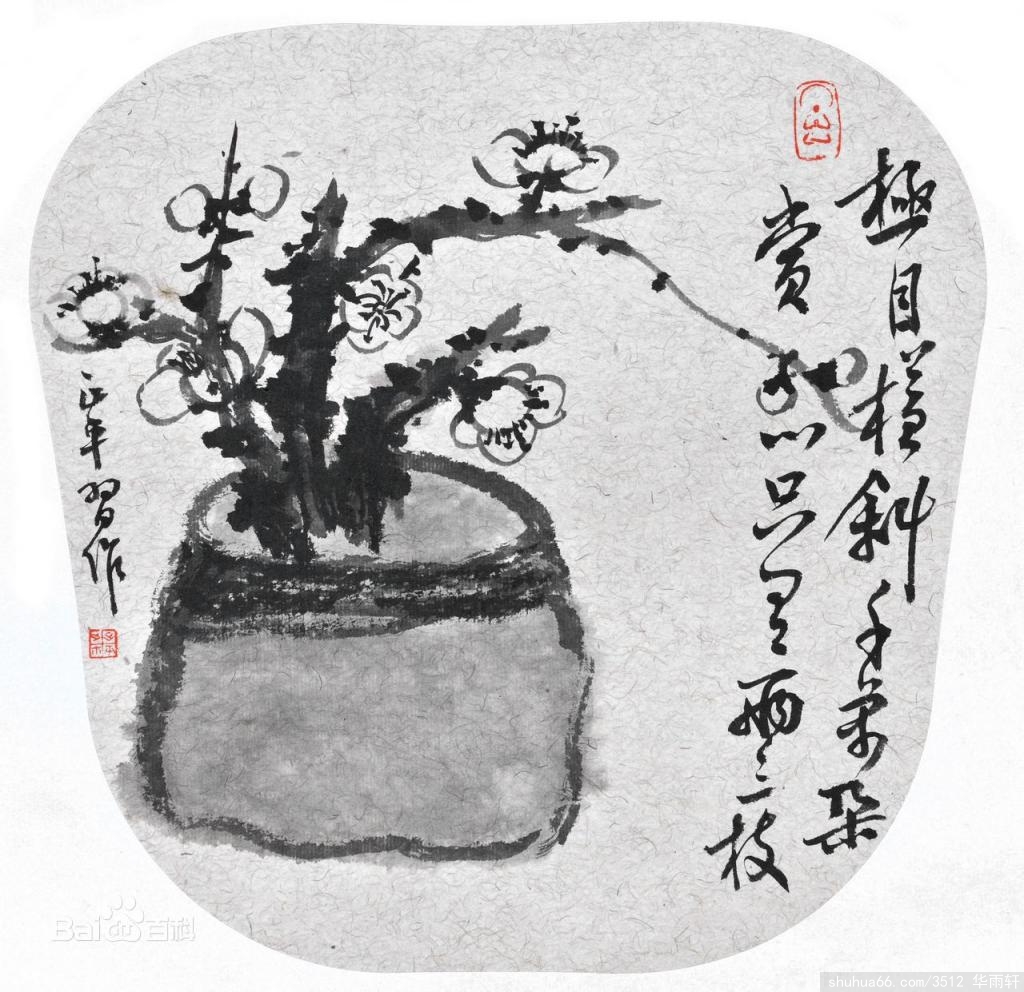 極目橫斜千萬朵
賞心只有兩三枝
正平習作
Bai百科
shuhua66.com/3512 华雨轩